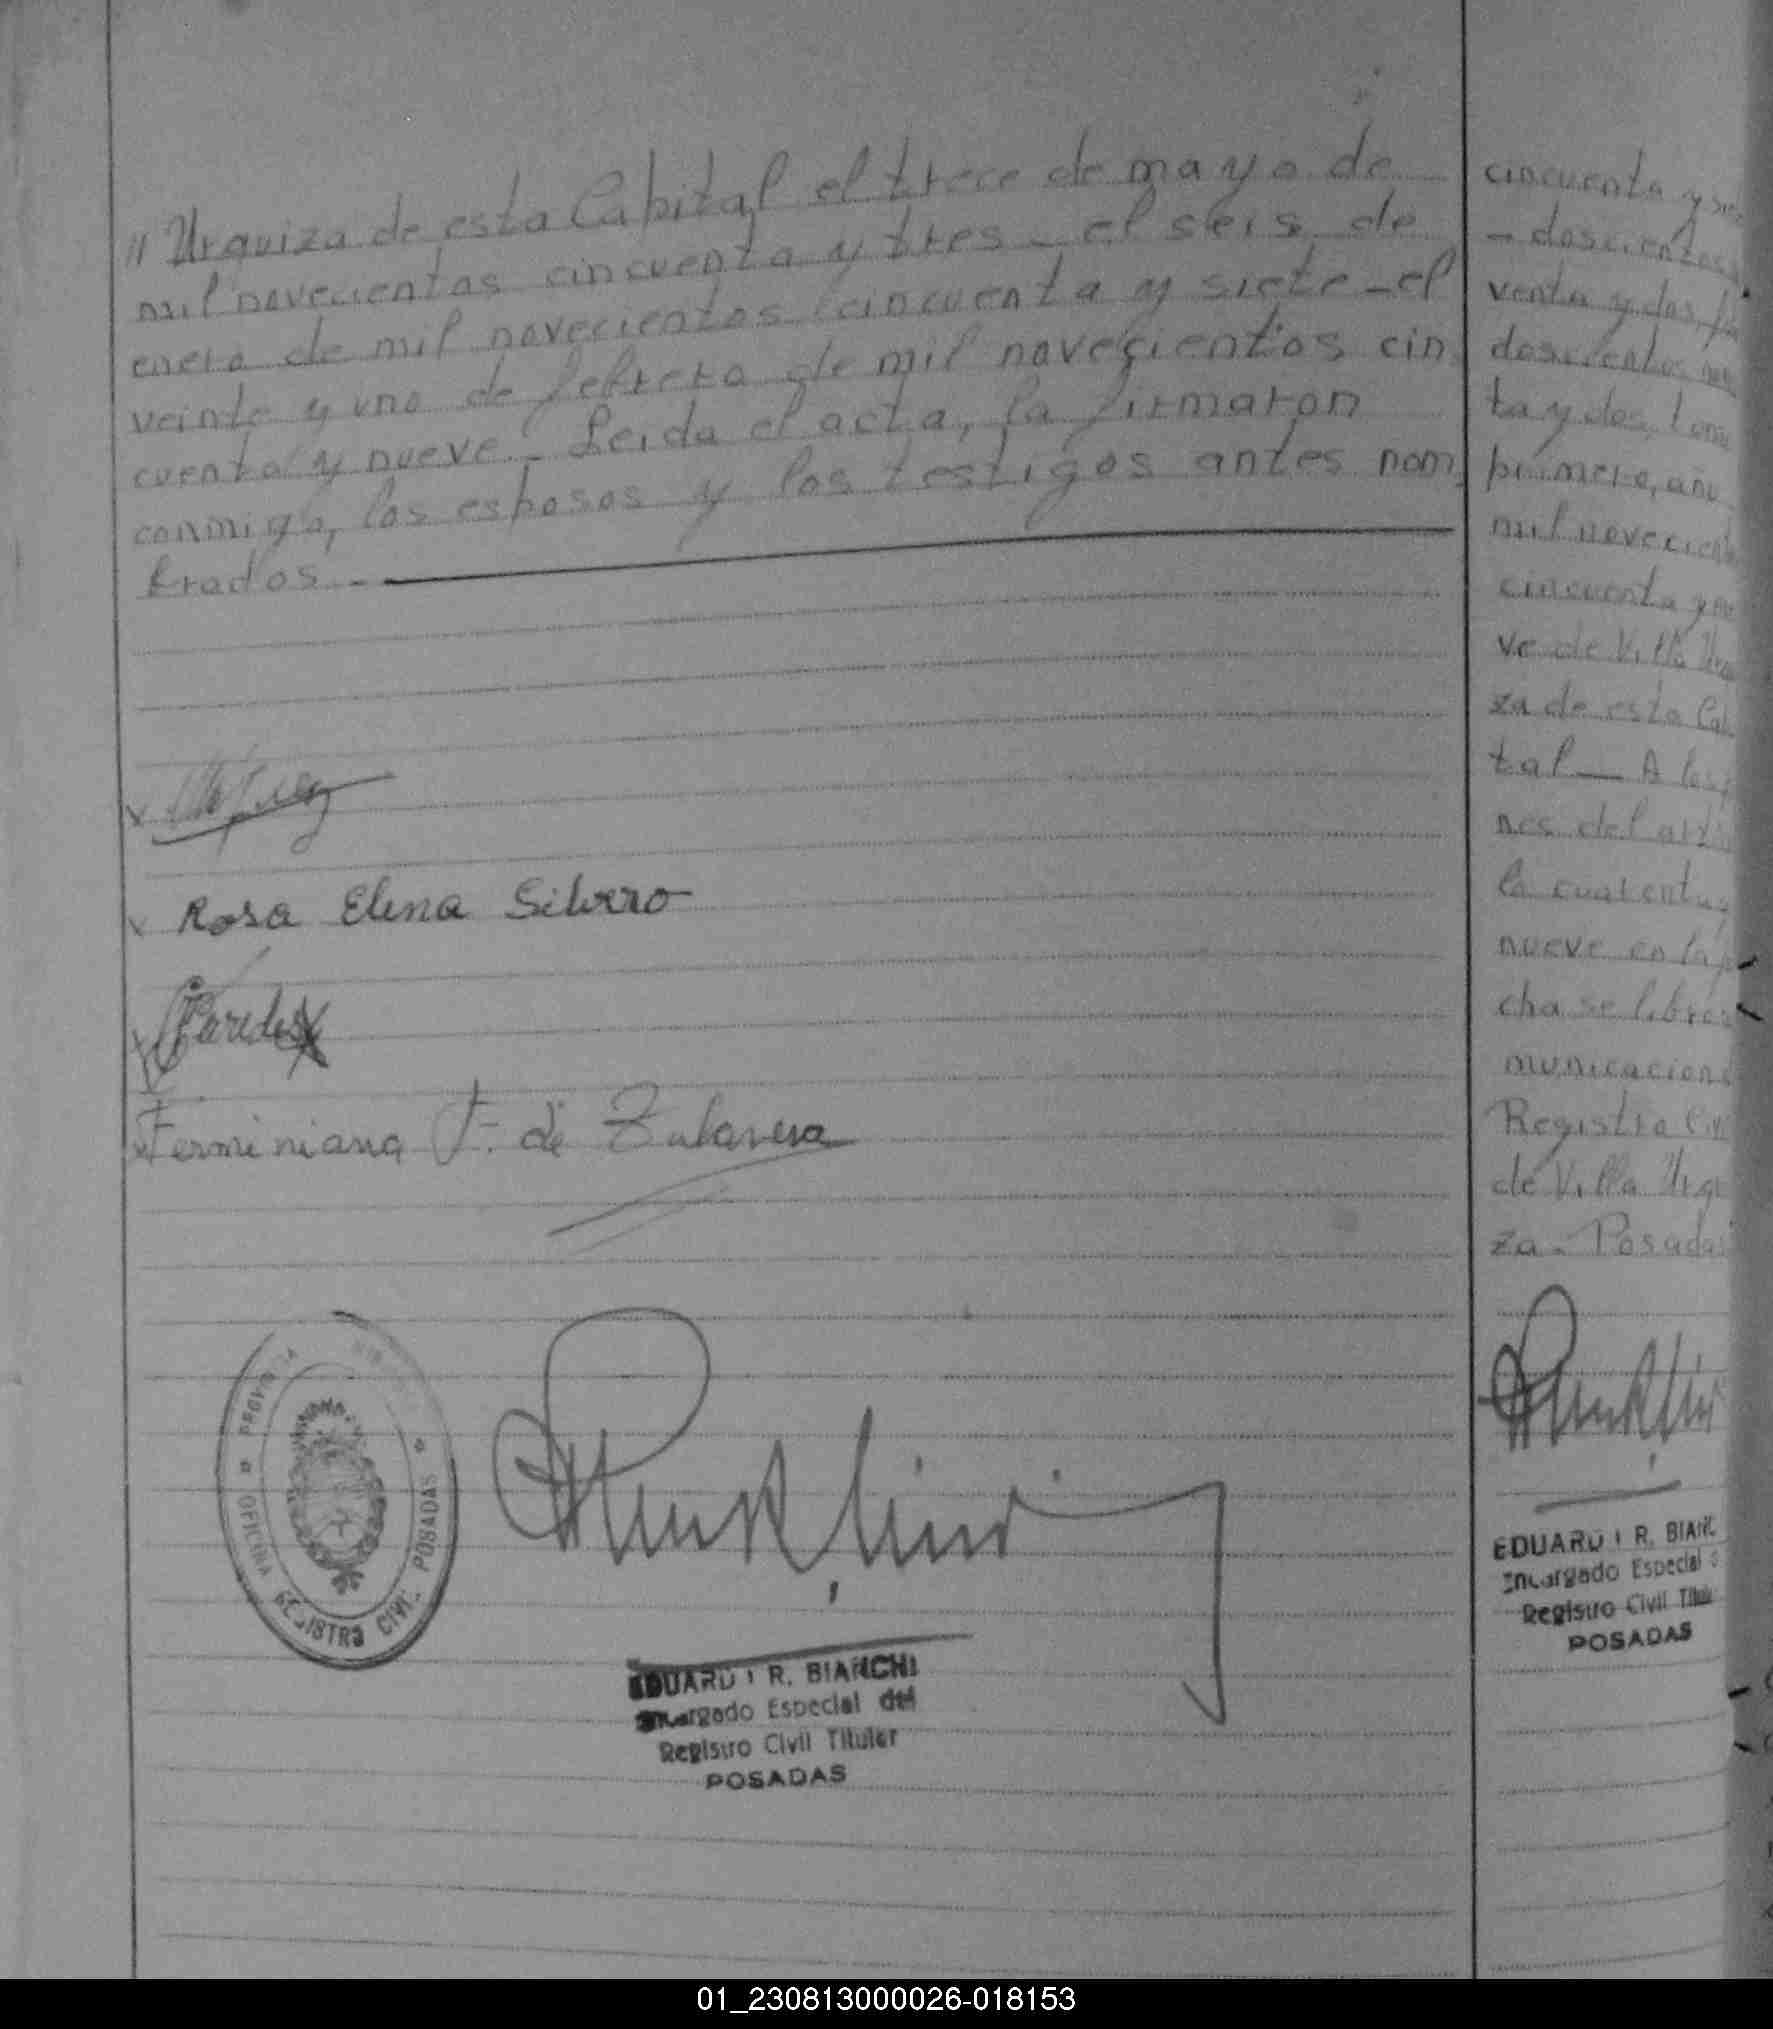 // Urquiza de esta Capital el trece de mayo de
mil novecientos cincuenta y tres - el seis de
enero de mil novecientos cincuenta y siete - el
veinte y uno de febrero de mil novecientos cin
cuenta y nueve. - Leida el acta, la firmaron
conmigo, los esposos y los testigos antes nom
brados. -
Rosa Elena Silvero
Paredes
Ferminiana F. de
PROVINCIA
OFICINA REGISTRO CIVIL POSADAS
EDUARDO R. BIANCHI
Encargado Especial del
Registro Civil Titular
POSADAS
cincuenta y
- doscientos
venta y dos
doscientos
ta y dos, tomo
primero, año
mil
cincuenta y
ve de Villa
za de esta
tal - A los
nes del
lo cuarenta y
nueve en la
cha se
Registro
de Villa
za. - Posadas
EDUARDO R.
Encargado Especial
Registro Civil
POSADAS
01_230813000026-018153